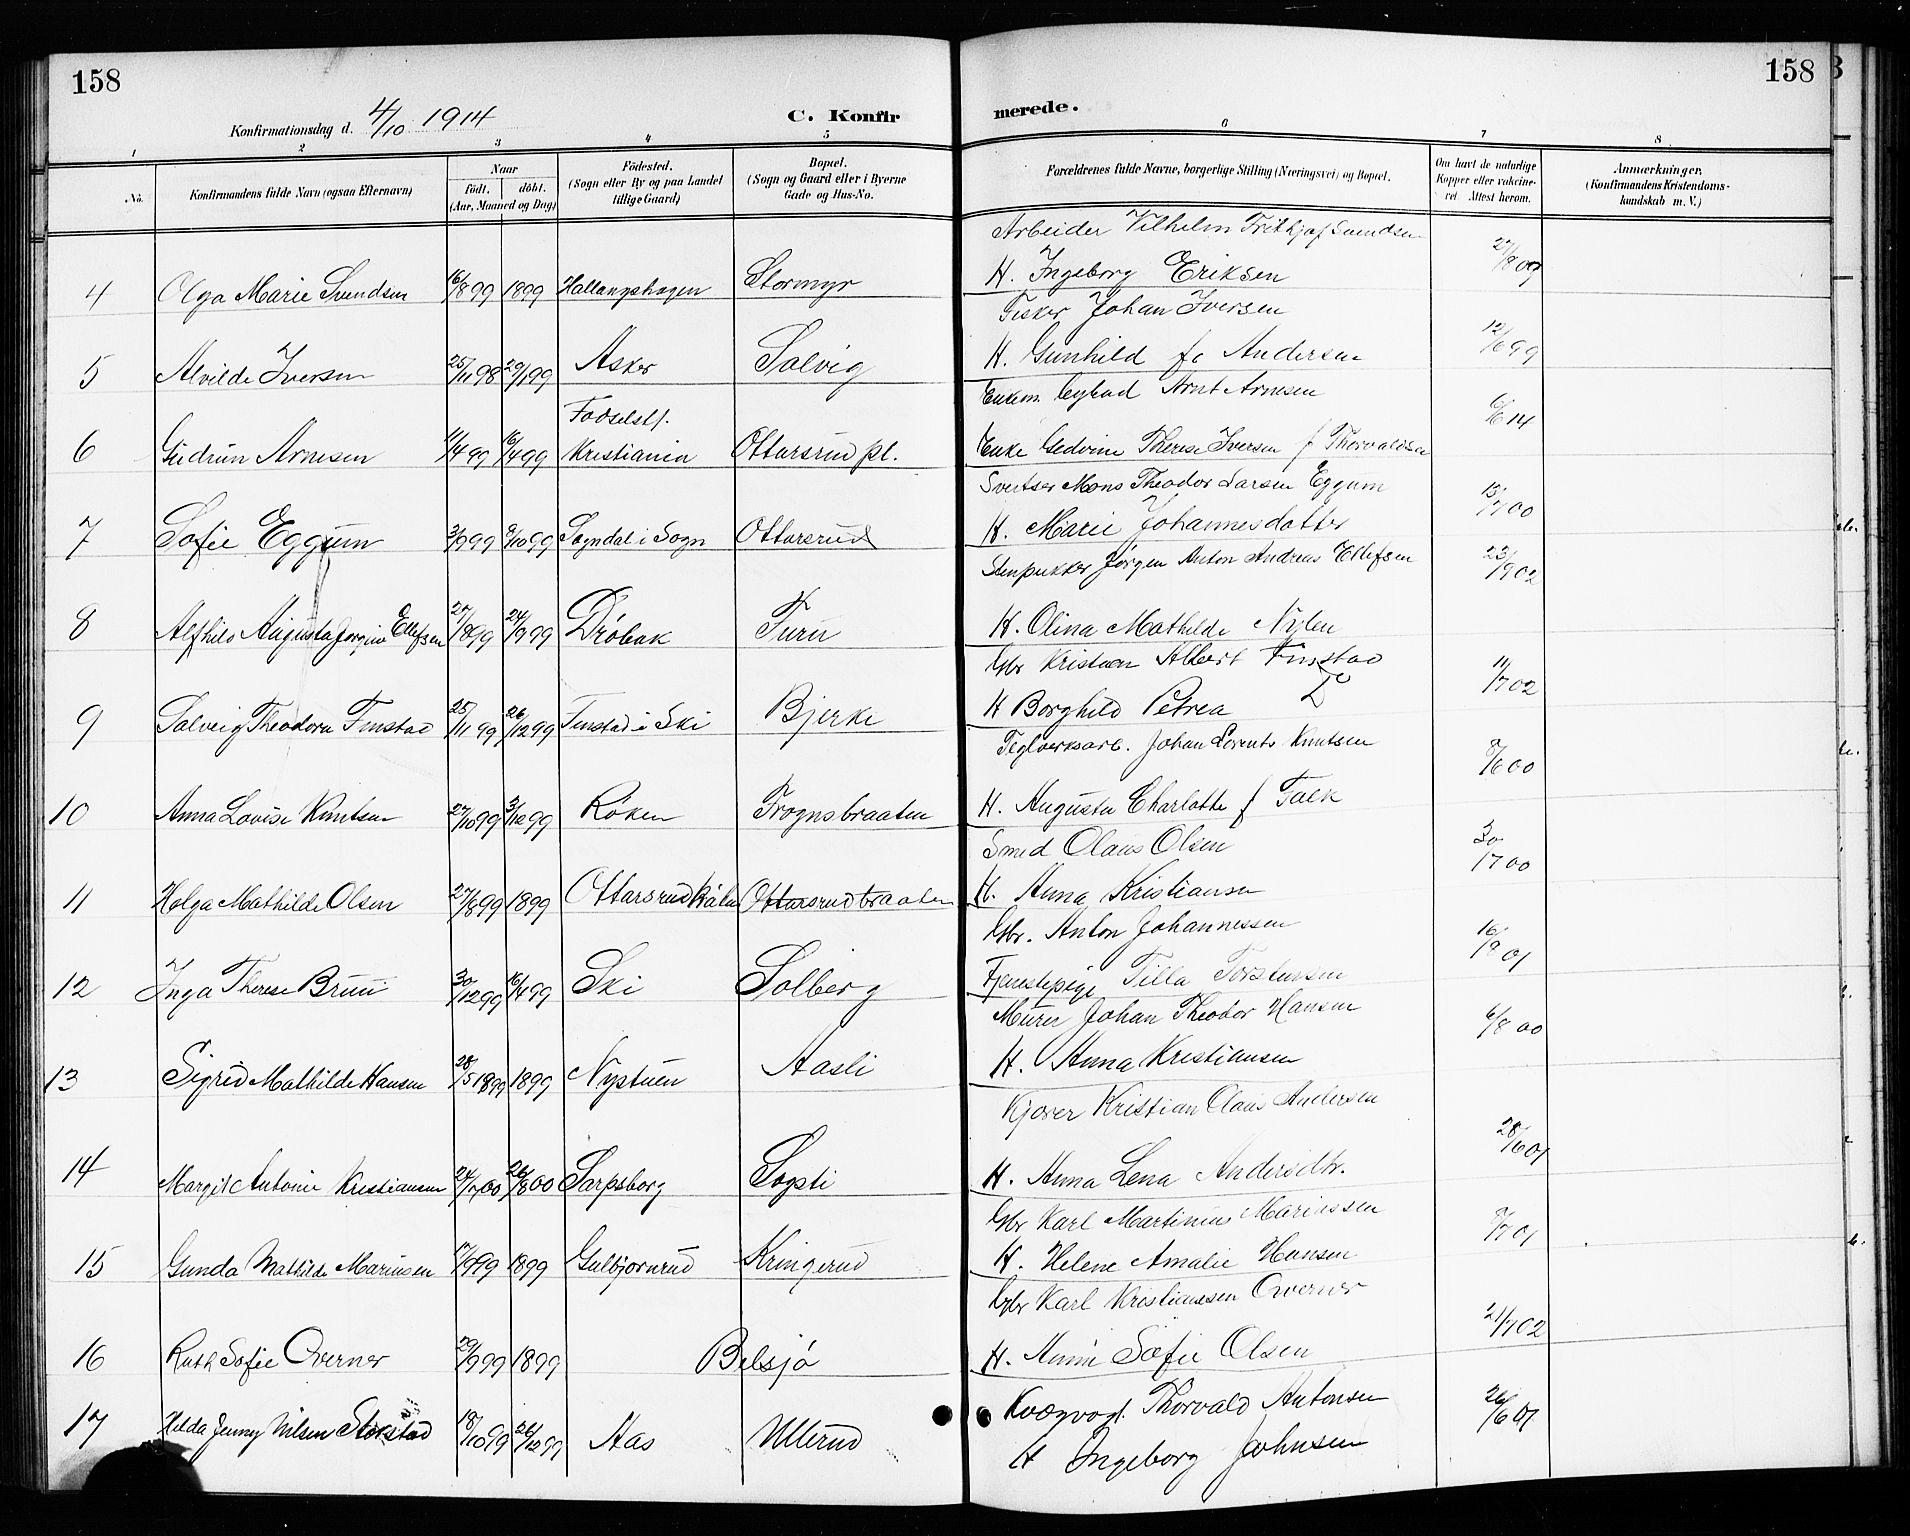 158
158
Konfirmationsdag d. 4/10 1914
C. Konfirmerede.
1 2 3 4 5 6 7 8
No.
Konfirmandens fulde Navn (ogsaa Efternavn)
Naar
födt. döbt.
(Aar, Maaned og Dag)
Födested.
(Sogn eller By og paa Landet
tillige Gaard)
Bopæl.
(Sogn og Gaard eller i Byerne
Gade og Hus-No.
Forældrenes fulde Navne, borgerlige Stilling (Næringsvei) og Bopæl.
Om havt de naturlige
Kopper eller vakcine-
ret Attest herom.
Anmærkninger.
(Konfirmandens Kristendoms-
kundskab m. V.)
Arbeider Vilhelm Frithjof Svendsen
4 Olga Marie Svendsen 16/8 99 1899 Hallangshagen Stormyr H. Ingeborg Eriksen
Fisker Johan Iversen
5 Alvilde Iversen 25/11 98 29/1 99 Asker Solvig H. Gunhild f. Andersen 12/6 99
Arnt Arnesen
Fødselsst.
6 Gudrun Arnesen 11/4 99 16/4 99 Kristiania Ottarsrud pl. Enke Gedvine Therese Iversen f Thorvaldsen
Mons Theodor Larsen Eggum
7 Sofie Eggum 3/9 99 8/10 99 Sogndal i Sogn Ottarsrud H. Marie Johannesdatter 13/7 00
Stenpukker Jørgen Anton Andreas Ellefsen 23/9 02
8 Alfhild Augusta Jorgine Ellefsen 27/8 99 24/9 99 Drøbak Furu H. Olina Mathilde Nylen
Gbr Kristian Albert Finstad
9 Solveig Theodora Finstad 25/11 99 26/12 99 Finstad i Ski Bjerke H Borghild Petrea 11/7 02
Teglverksarb. Johan Lorents Knutsen
10 Anna Lovise Knutsen 27/10 99 3/12 99 Røken Frognsbraaten H. Augusta Charlotte f Falk 8/6 00
Smed Olaus Olsen
11 Helga Mathilde Olsen 27/8 99 1899 Ottarsrud Ottarsrudbraaten H. Anna Kristiansen 30/1 00
Gbr. Anton Johannessen
12 Inga Therese Bruu 30/12 99 16/4 99 Ski Solberg Tjenestepige Tilla Torstensen 16/9 01
Murer Johan Theodor Hansen
13 Sigrid Mathilde Hansen 28/5 1899 1899 Nystuen Aasli H. Anna Kristiansen 6/8 00
Kjører Kristian Olaus Andersen
14 Margit Antonie Kristiansen 24/7 00 26/8 00 Sarpsborg Sogsti H. Anna Lena Andersdtr. 28/6 01
Gbr Karl Martinius Mariussen
15 Gunda Mathilde Mariusen 17/9 99 1899 Gulbjørnrud Kringerud H. Helene Amalie Hansen 8/7 01
Gbr Karl Kristianssen Overner
16 Ruth Sofie Overner 29/9 99 1899 Belsjø H. Anna Sofie Olsen 21/7 02
Kvægvogt. Thorvald Antonsen
17 Hilda Jenny Nilsen Storstad 18/10 99 26/12 99 Aas Ullerud H Ingeborg Johnsen 26/6 01